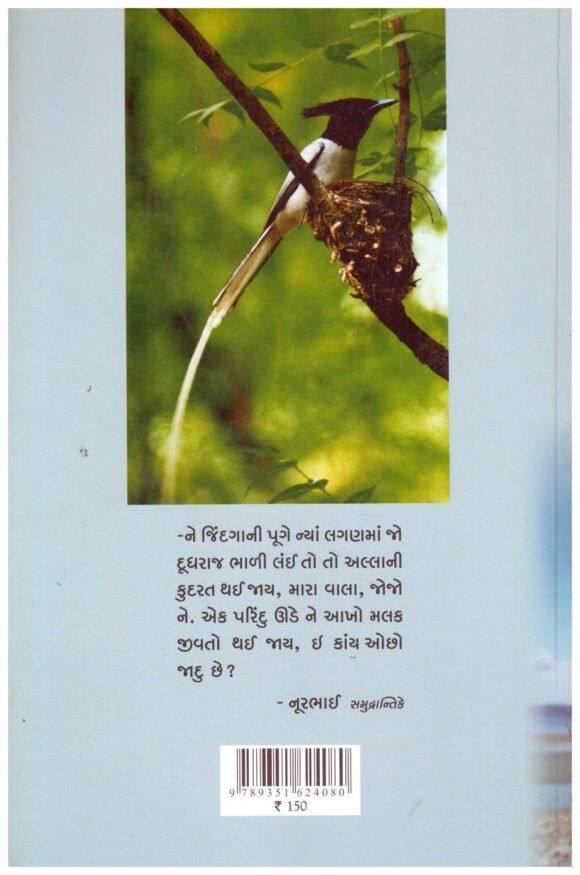 -ને જિંદગાની પૂગે ન્યાં લગણમાં જો
દૂધરાજ ભાળી લંઈ તો તો અલ્લાની
કુદરત થઈ જાય, મારા વાલા, જોજો
ને. એક પરિંદુ ઊડે ને આખો મલક
જીવતો થઈ જાય, ઇ કાંય ઓછો
જાદુ છે?
- નૂરભાઈ સમુદ્રાન્તિકે
9 789351 624080
₹ 150